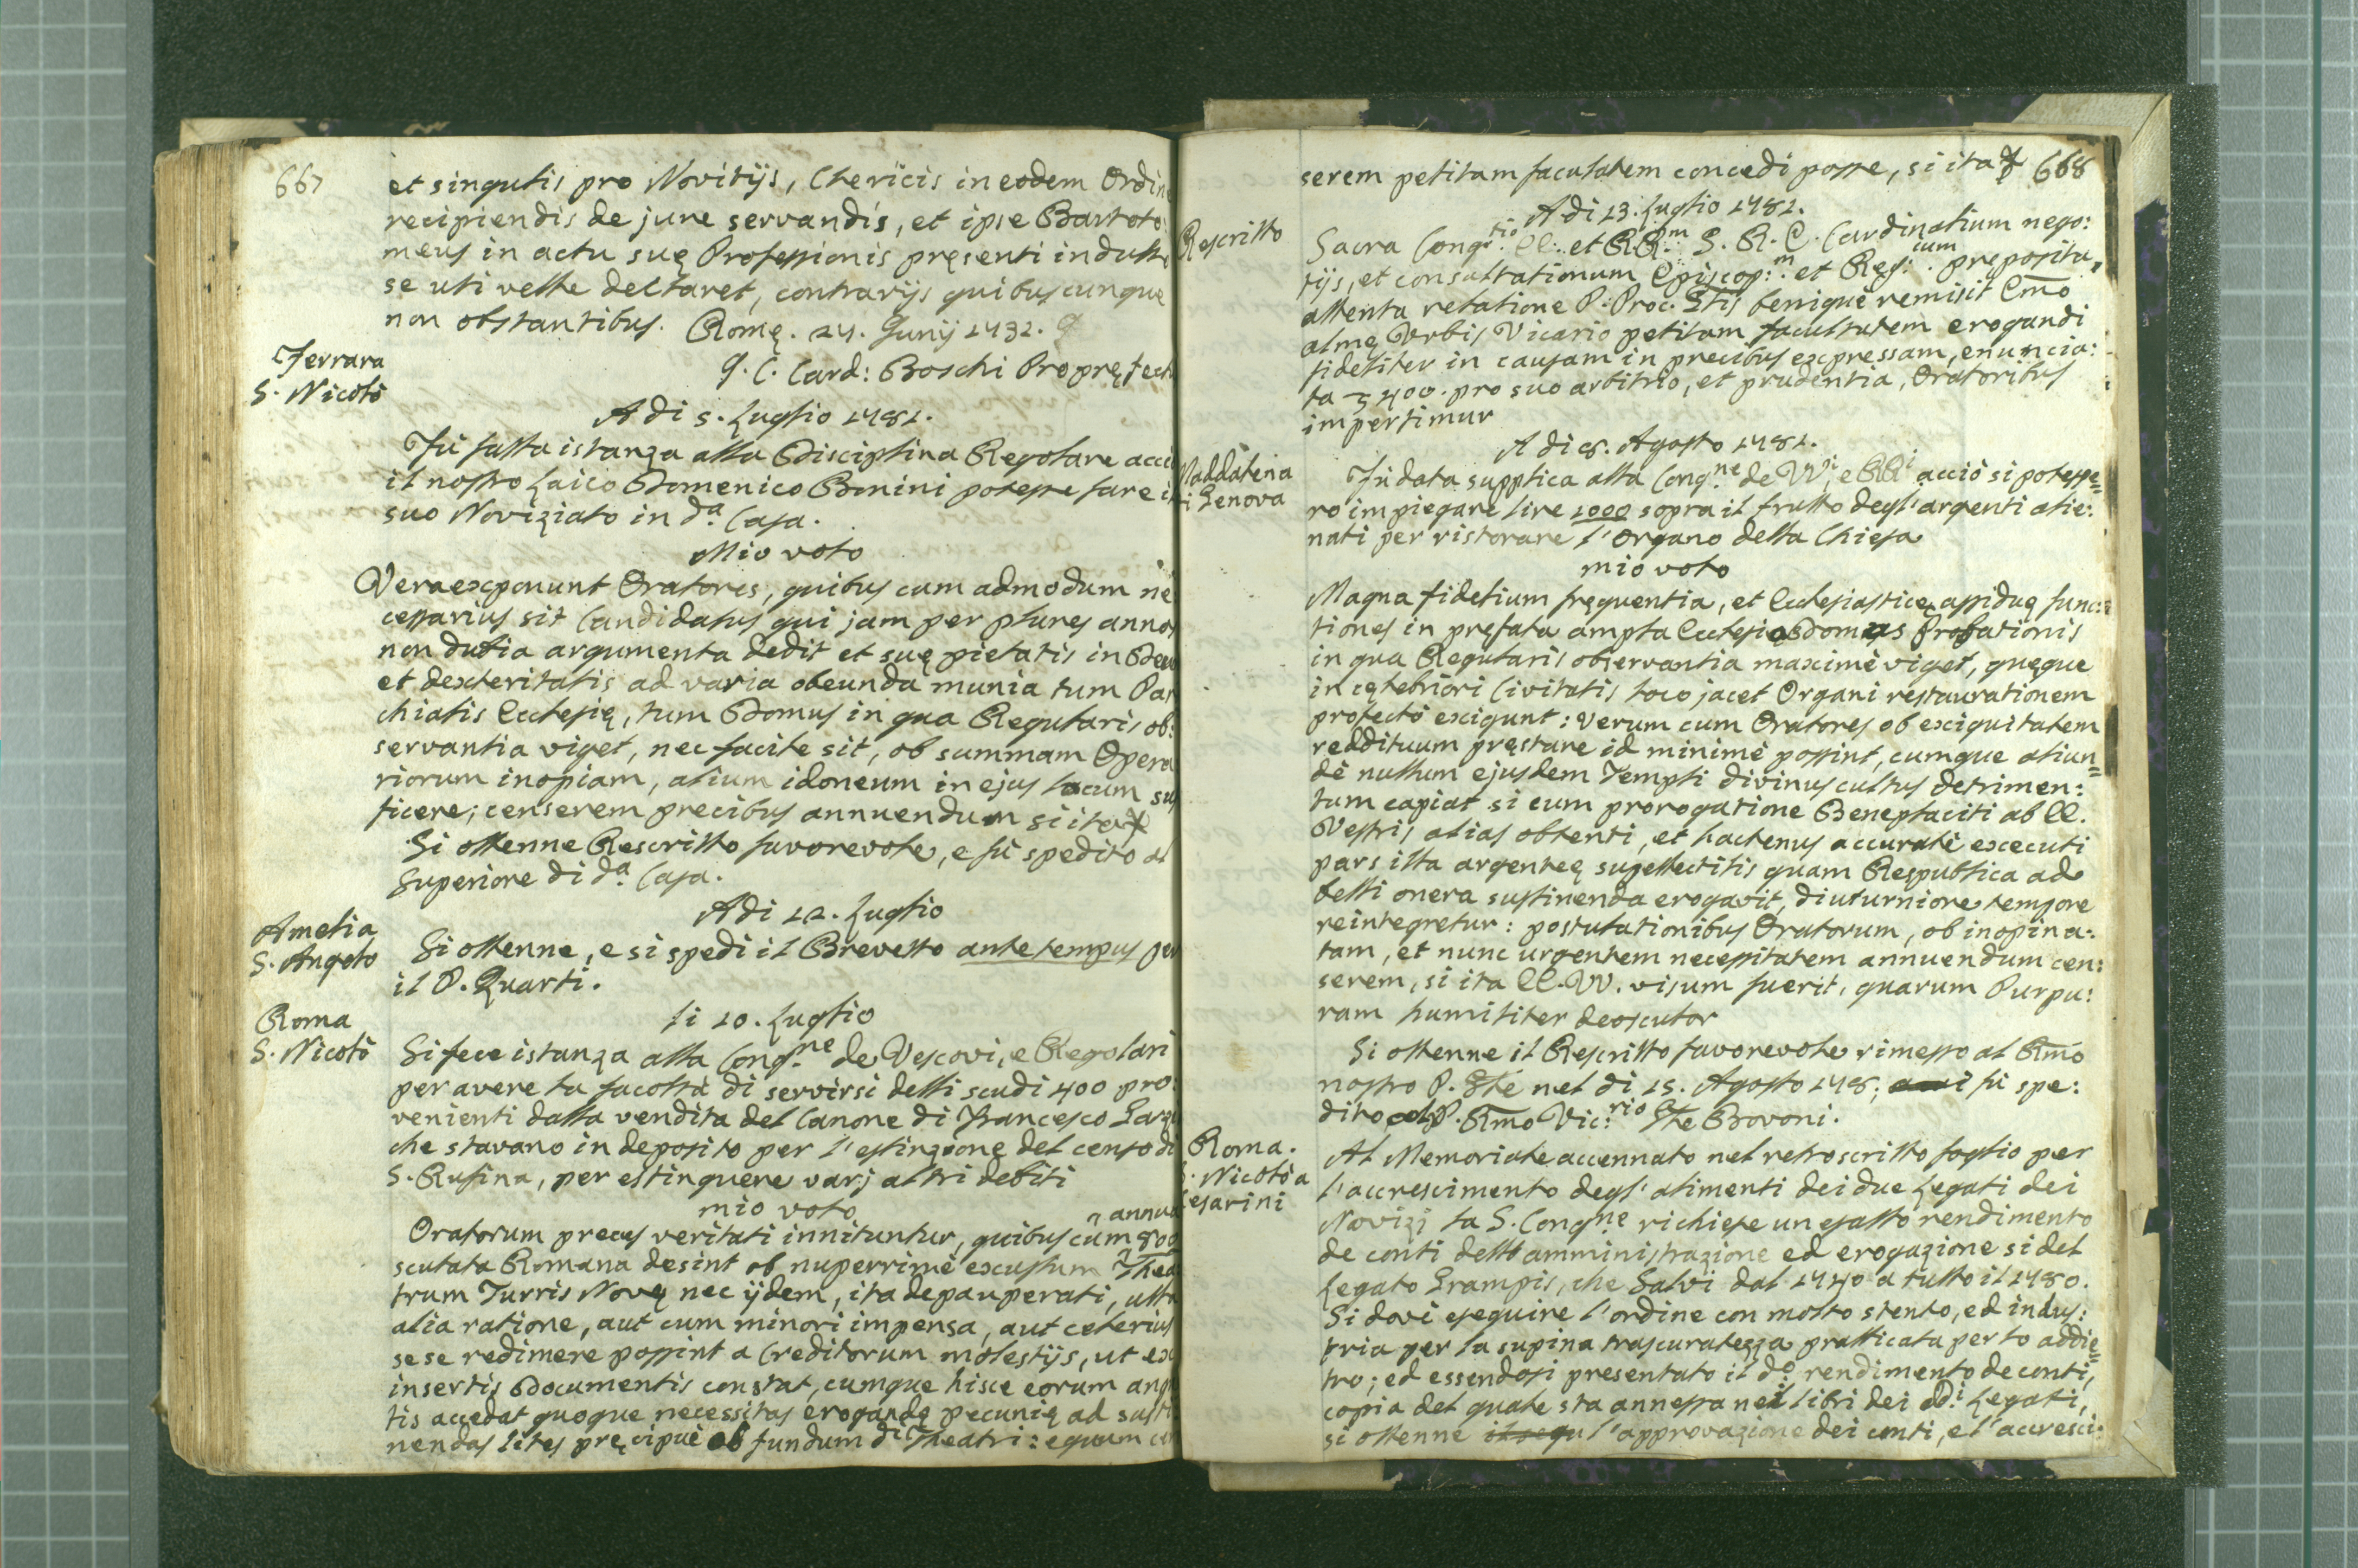 667
et singulis pro Novitijs, Clericis in eodem Ordin
recipiendis de jure servandis, et ipse Bartolo
meus in actu suę Professionis pręsenti indulto
se uti velle declaret, contrarijs quibuscunque
non obstantibus. Romę. 24. Junij 1782.
J. C. Card: Boschi Propręfect
Ferrara
S. Nicolò
A di 5. Luglio 1782.
Fù fatta istanza alla Disciplina Regolare acciò
il nostro Laico Domenico Bonini potesse fare il
suo Noviziato in dª Casa.
Mio voto
Vera exponunt Oratores, quibus cum admodum ne
cessarius sit Candidatus qui jam per plures annos
non dubia argumenta dedit et suę pietatis in Deum
et dexteritatis ad varia obeunda munia tum Par
chialis Ecclesię, tum Domus in qua Regularis ob:
servantia viget, nec facile sit, ob summam Opera
riorum inopiam, alium idoneum in ejus locum suf
ficere; censerem precibus annuendum si ita
Si ottenne Rescritto favorevole, e fù spedito al
Superiore di dª Casa.
Adi 12. Luglio
Amelia
S. Angelo
Si ottenne, e si spedì il Brevetto ante tempus per
il P. Quarti.
li 10. Luglio
Roma
S. Nicolò
Si fece istanza alla Congne de Vescovi, e Regolari
per avere la facoltà di servirsi delli scudi 400 pro:
venienti dalla vendita del Canone di Francesco
che stavano in deposito per l'estinzione del censo di
S. Rufina, per estinguere varj altri debiti
mio voto
Oratorum preces veritati innituntur, quibus cum annua 800
scutata Romana desint ob nuperrimè exustum Thea
trum Turris Novę nec ijdem, ita depauperati, ulla
alia ratione, aut cum minori impensa, aut celerius
sese redimere possint a Creditorum molestijs, ut ex
insertis Documentis constat, cumque hisce eorum angu
tis accedat quoque necessitas erogandę pecunię ad susti
nendas lites pręcipuè ob fundum di Theatri: equum cen
668
serem petitam facultatem concedi posse, si ita
A di 13. Luglio 1782.
Rescritto
Sacra Congtio EE. et RRm S. R. E. Cardinalium nego:
tijs, et consultationum Episcop:m et Reg:cum preposita,
attenta relatione P. Proc. Glis benignè remisit Emo
almę Urbis Vicario petitam facultatem erogandi
fideliter in causam in precibus expressam, enuncia:
ta 400. pro suo arbitrio, et prudentia, Oratoribus
impertimur
A di 8. Agosto 1782.
Maddalena
di Genova
Fù data supplica alla Congne de VVi e RRi acciò si potesse=
ro impiegare lire 1000 sopra il frutto degl'argenti alie:
nati per ristorare l'Organo della Chiesa
mio voto
Magna fidelium fręquentia, et Ecclesiasticę assiduę func:
tiones in prefata ampla Ecclesia Domus Probationis
in qua Regularis observantia maximè viget, quęque
in cęlebriori Civitatis loco jacet Organi restaurationem
profectò exigunt: verum cum Oratores ob exiguitatem
reddituum pręstare id minimè possint, cumque aliun=
dè nullum ejusdem Templi divinus cultus detrimen:
tum capiat si cum prorogatione Beneplaciti ab EE.
Vestris alias obtenti, et hactenus accuratè executi
pars illa argenteę supellectilis quam Respublica ad
belli onera sustinenda erogavit, diuturniore tempore
reintegretur: postulationibus Oratorum, ob inopina:
tam, et nunc urgentem necessitatem annuendum cen:
serem, si ita EE. VV. visum fuerit, quarum Purpu:
ram humiliter deosculor
Si ottenne il Rescritto favorevole rimesso al Rmo
nostro P. Gle nel di 15. Agosto 178; fù spe:
dito al P. Rmo Vic:rio Gle Bovoni.
Roma.
S. Nicolò a
Cesarini
Al Memoriale accennato nel retroscritto foglio per
l'accrescimento degl'alimenti dei due Legati dei
Novizj la S. Congne richiese un esatto rendimento
de conti dell'amministrazione ed erogazione sì del
Legato Grampis, che Salvi dal 1740 a tutto il 1780.
Si dovè eseguire l'ordine con molto stento, ed indus:
tria per la supina trascuratezza pratticata per lo addie=
tro; ed essendosi presentato il dº rendimento de conti,
copia del quale sta annessa nei libri dei ddi Legati,
si ottenne l'approvazione dei conti, e l'accresci: